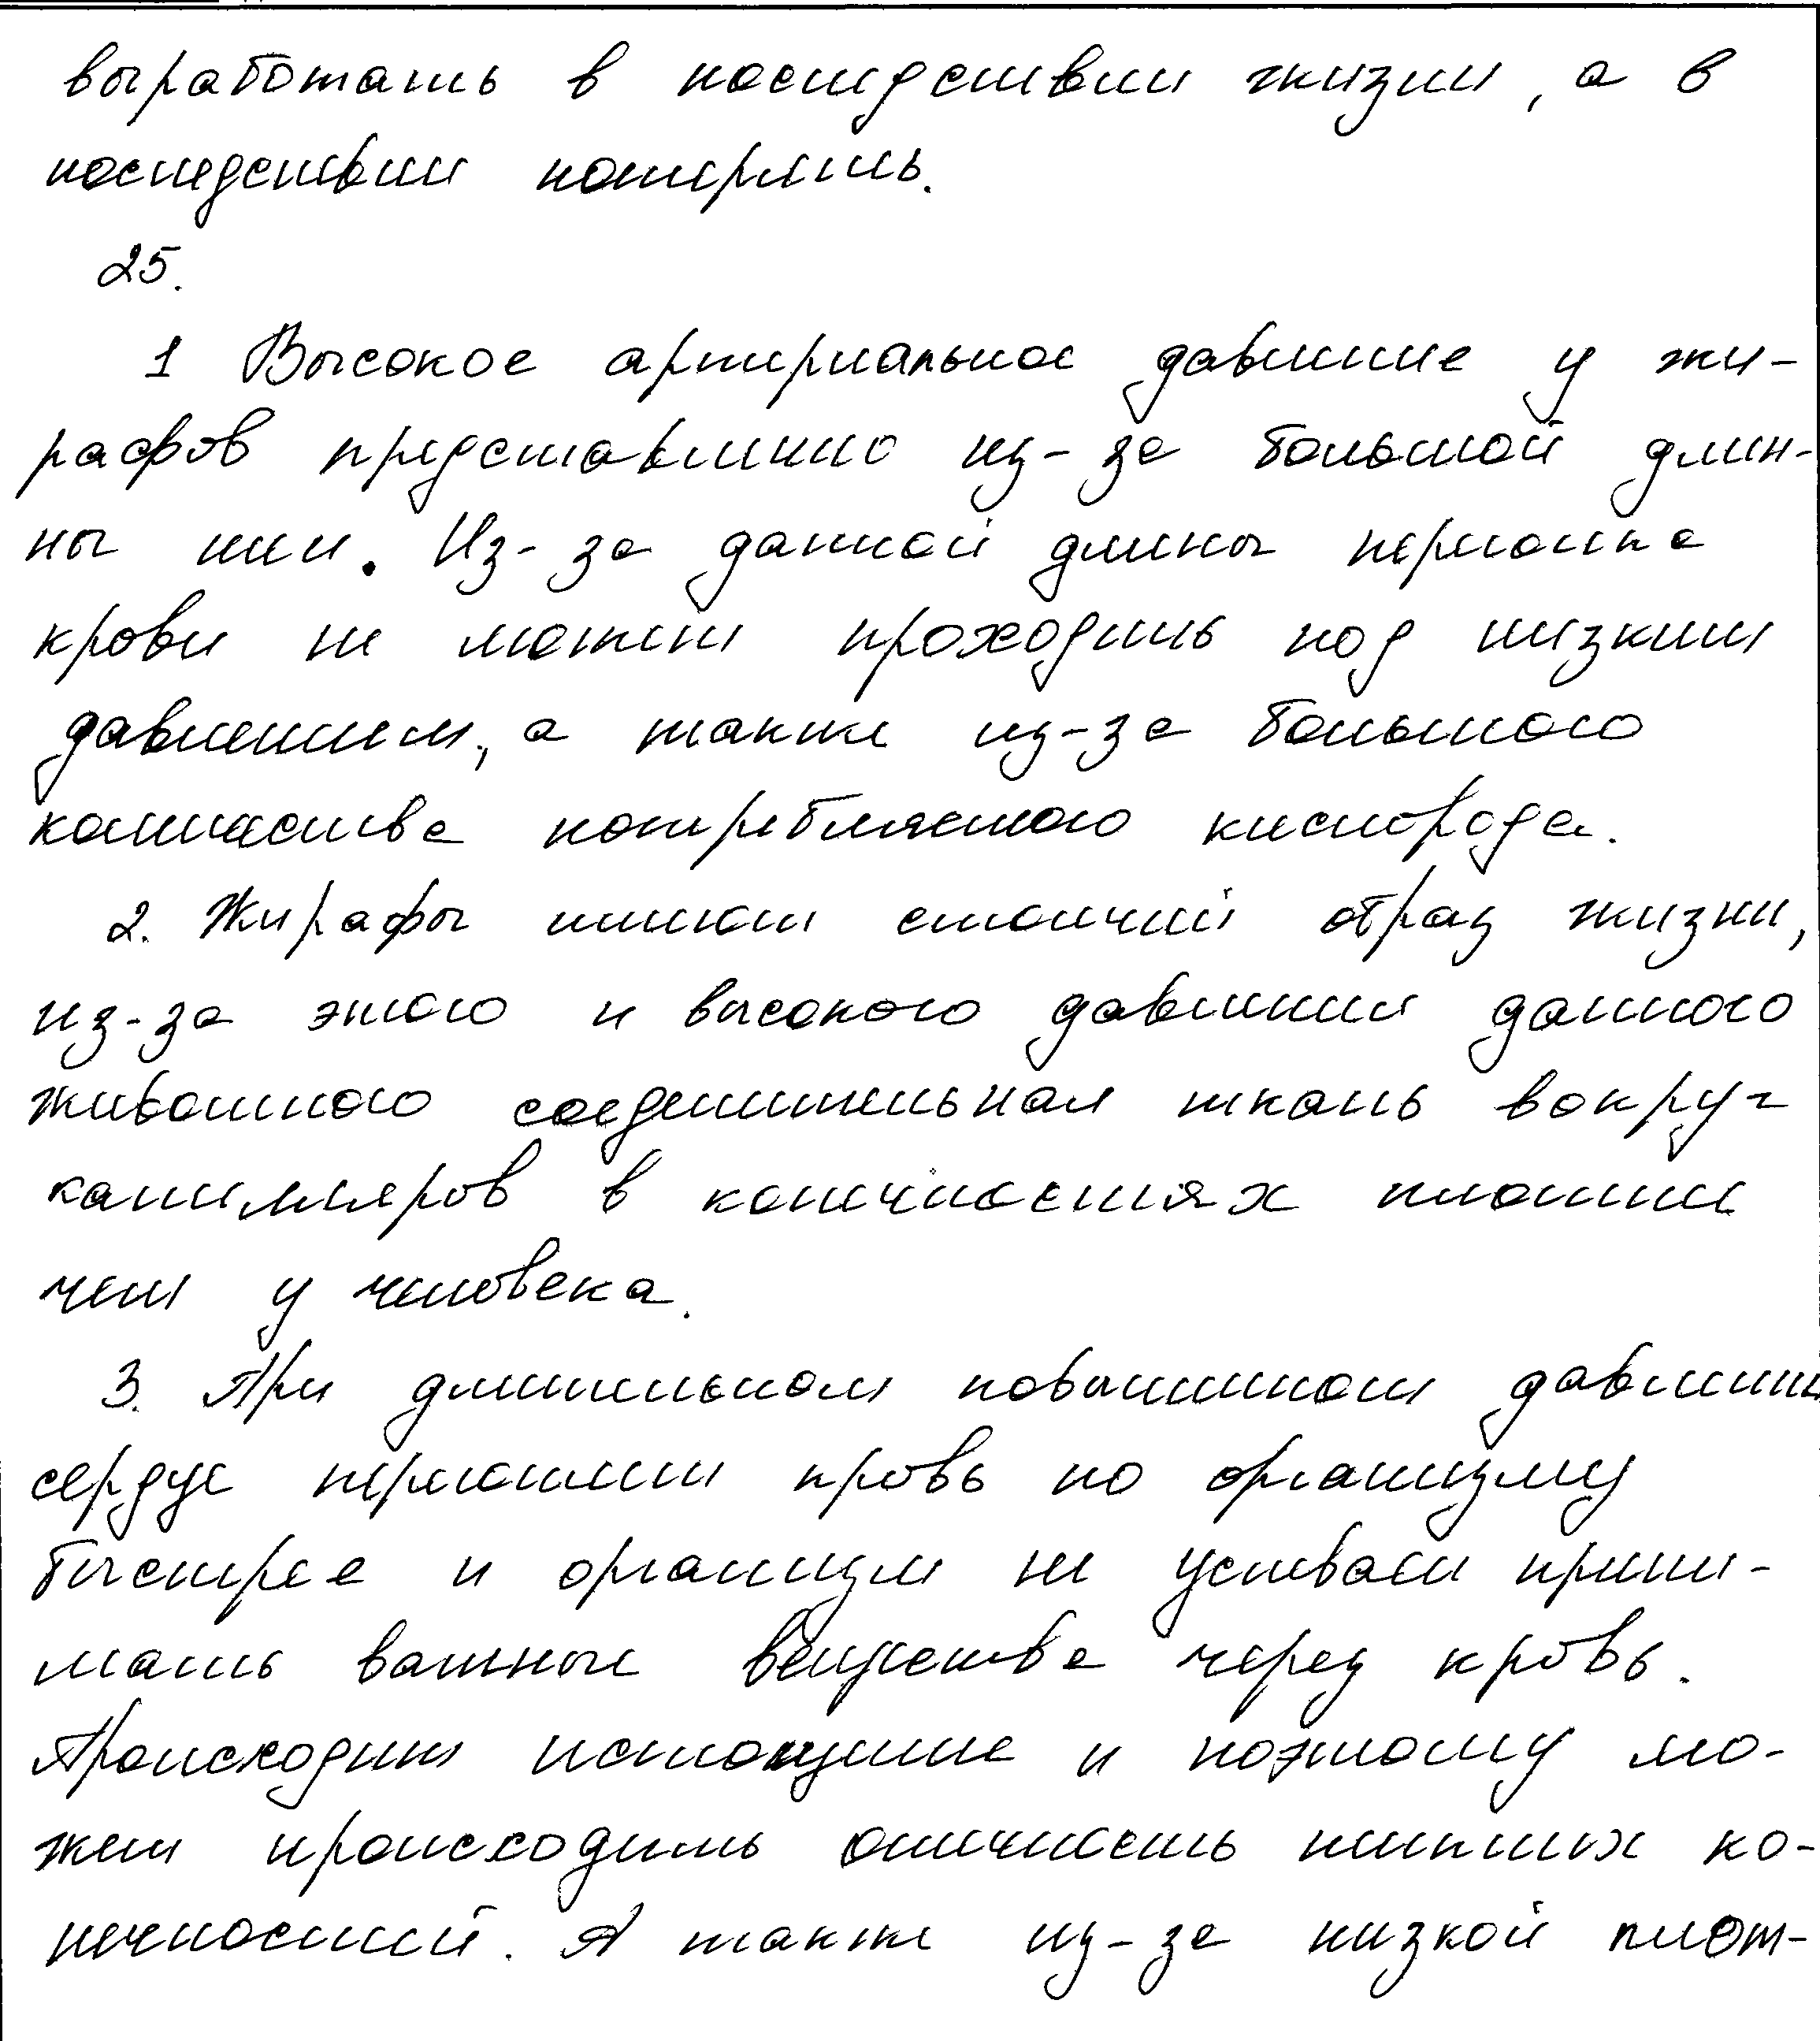 выработать в последствии жизни, а в
последствии потерять.
25.
1 Высокое артериальное давление у жи-
рафов представленно из-за большой длин-
ны шеи. Из-за данной длины перегонка
крови не может проходить под низким
давлением, а также из-за большого
количества потребляемого кислорода.
2. Жирафы имеют стоячий образ жизни,
из-за этого и высокого давления данного
животного соеденительная ткань вокруг
капилляров в конечностях плотнее
чем у человека.
3. При длительном повышенном давлении
сердце перегоняет кровь по организму
быстрее и организм не успевает прини-
мать важные вещества через кровь.
Происходит истощение и поэтому мо-
жет происходить отечность нижних ко-
нечностей. А также из-за низкой плот-